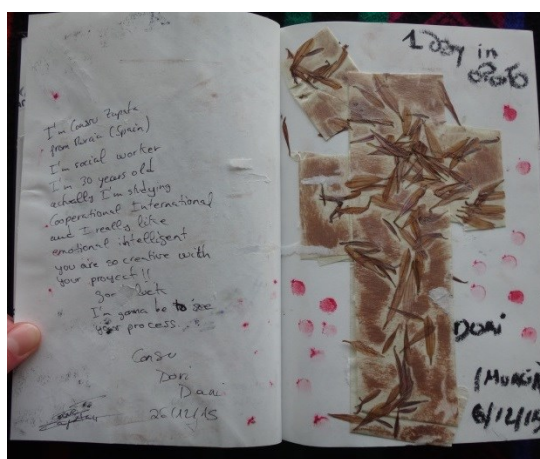 I'm Consu Zapata
from Murcia (Spain)
I'm social worker
I'm 30 years old
actually I'm studying
Cooperational International
and I really like
emotional intelligent
you are so creative with
your proyect!!
goo luck
I'm gonna be to see
your process..!!
Consu
Dori
Dani
26/12/15
1 Day in
DORI
/Murcia
6/12/15